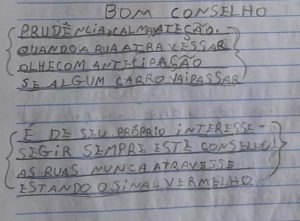 BOM CONSELHO
PRUDÊNCIA, CALMA, ATEÇÃO,
QUANDO A RUA ATRAVESSAR
OLHE COM ANTICIPAÇÃO
SE ALGUM CARRO VAI PASSAR
É DE SEU PRÓPRIO INTERESSE
SEGIR SEMPRE ESTE CONSELHO:
AS RUAS NUNCA ATRAVESSE
ESTANDO O SINAL VERMELHO